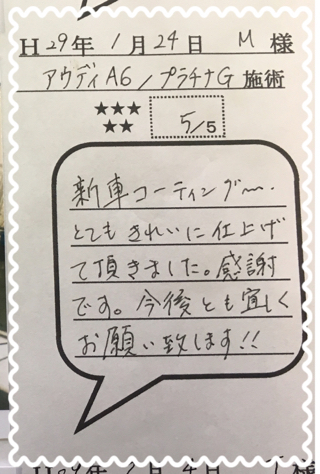 H29年 1月24日 M 様
アウディA6/プラチナG 施術
★★★
★★
5/5
新車コーティング〜.
とてもきれいに仕上げ
て頂きました。感謝
です。今後とも宜しく
お願い致します!!